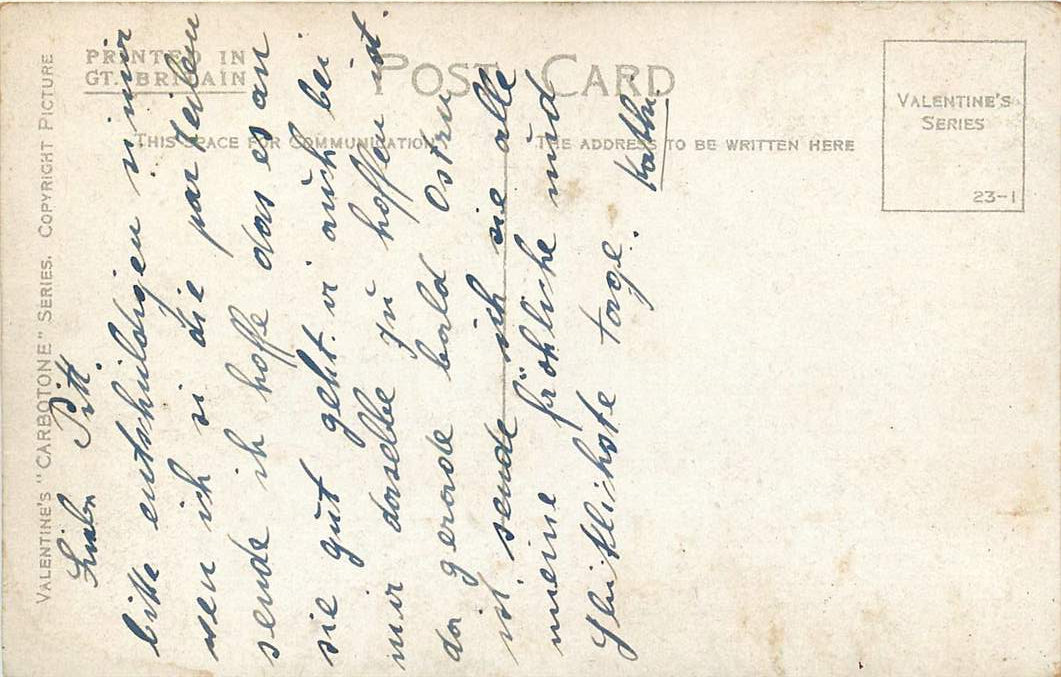 PRINTED IN
GT. BRITAIN
POST CARD
THIS SPACE FOR COMMUNICATION
THE ADDRESS TO BE WRITTEN HERE
VALENTINE'S
SERIES
23-1
VALENTINE'S "CARBOTONE" SERIES. COPYRIGHT PICTURE
Pitt.
bitte entshuldigen si mir
wen ich si die par teilen
sende ich hoffe das es an
sie gut geht. wi auch bei
mir daselbe zu hoffen ist.
da gerade bald Ostru
ist. sende ich sie alle
meine fröhliche und
tage.
Kathi